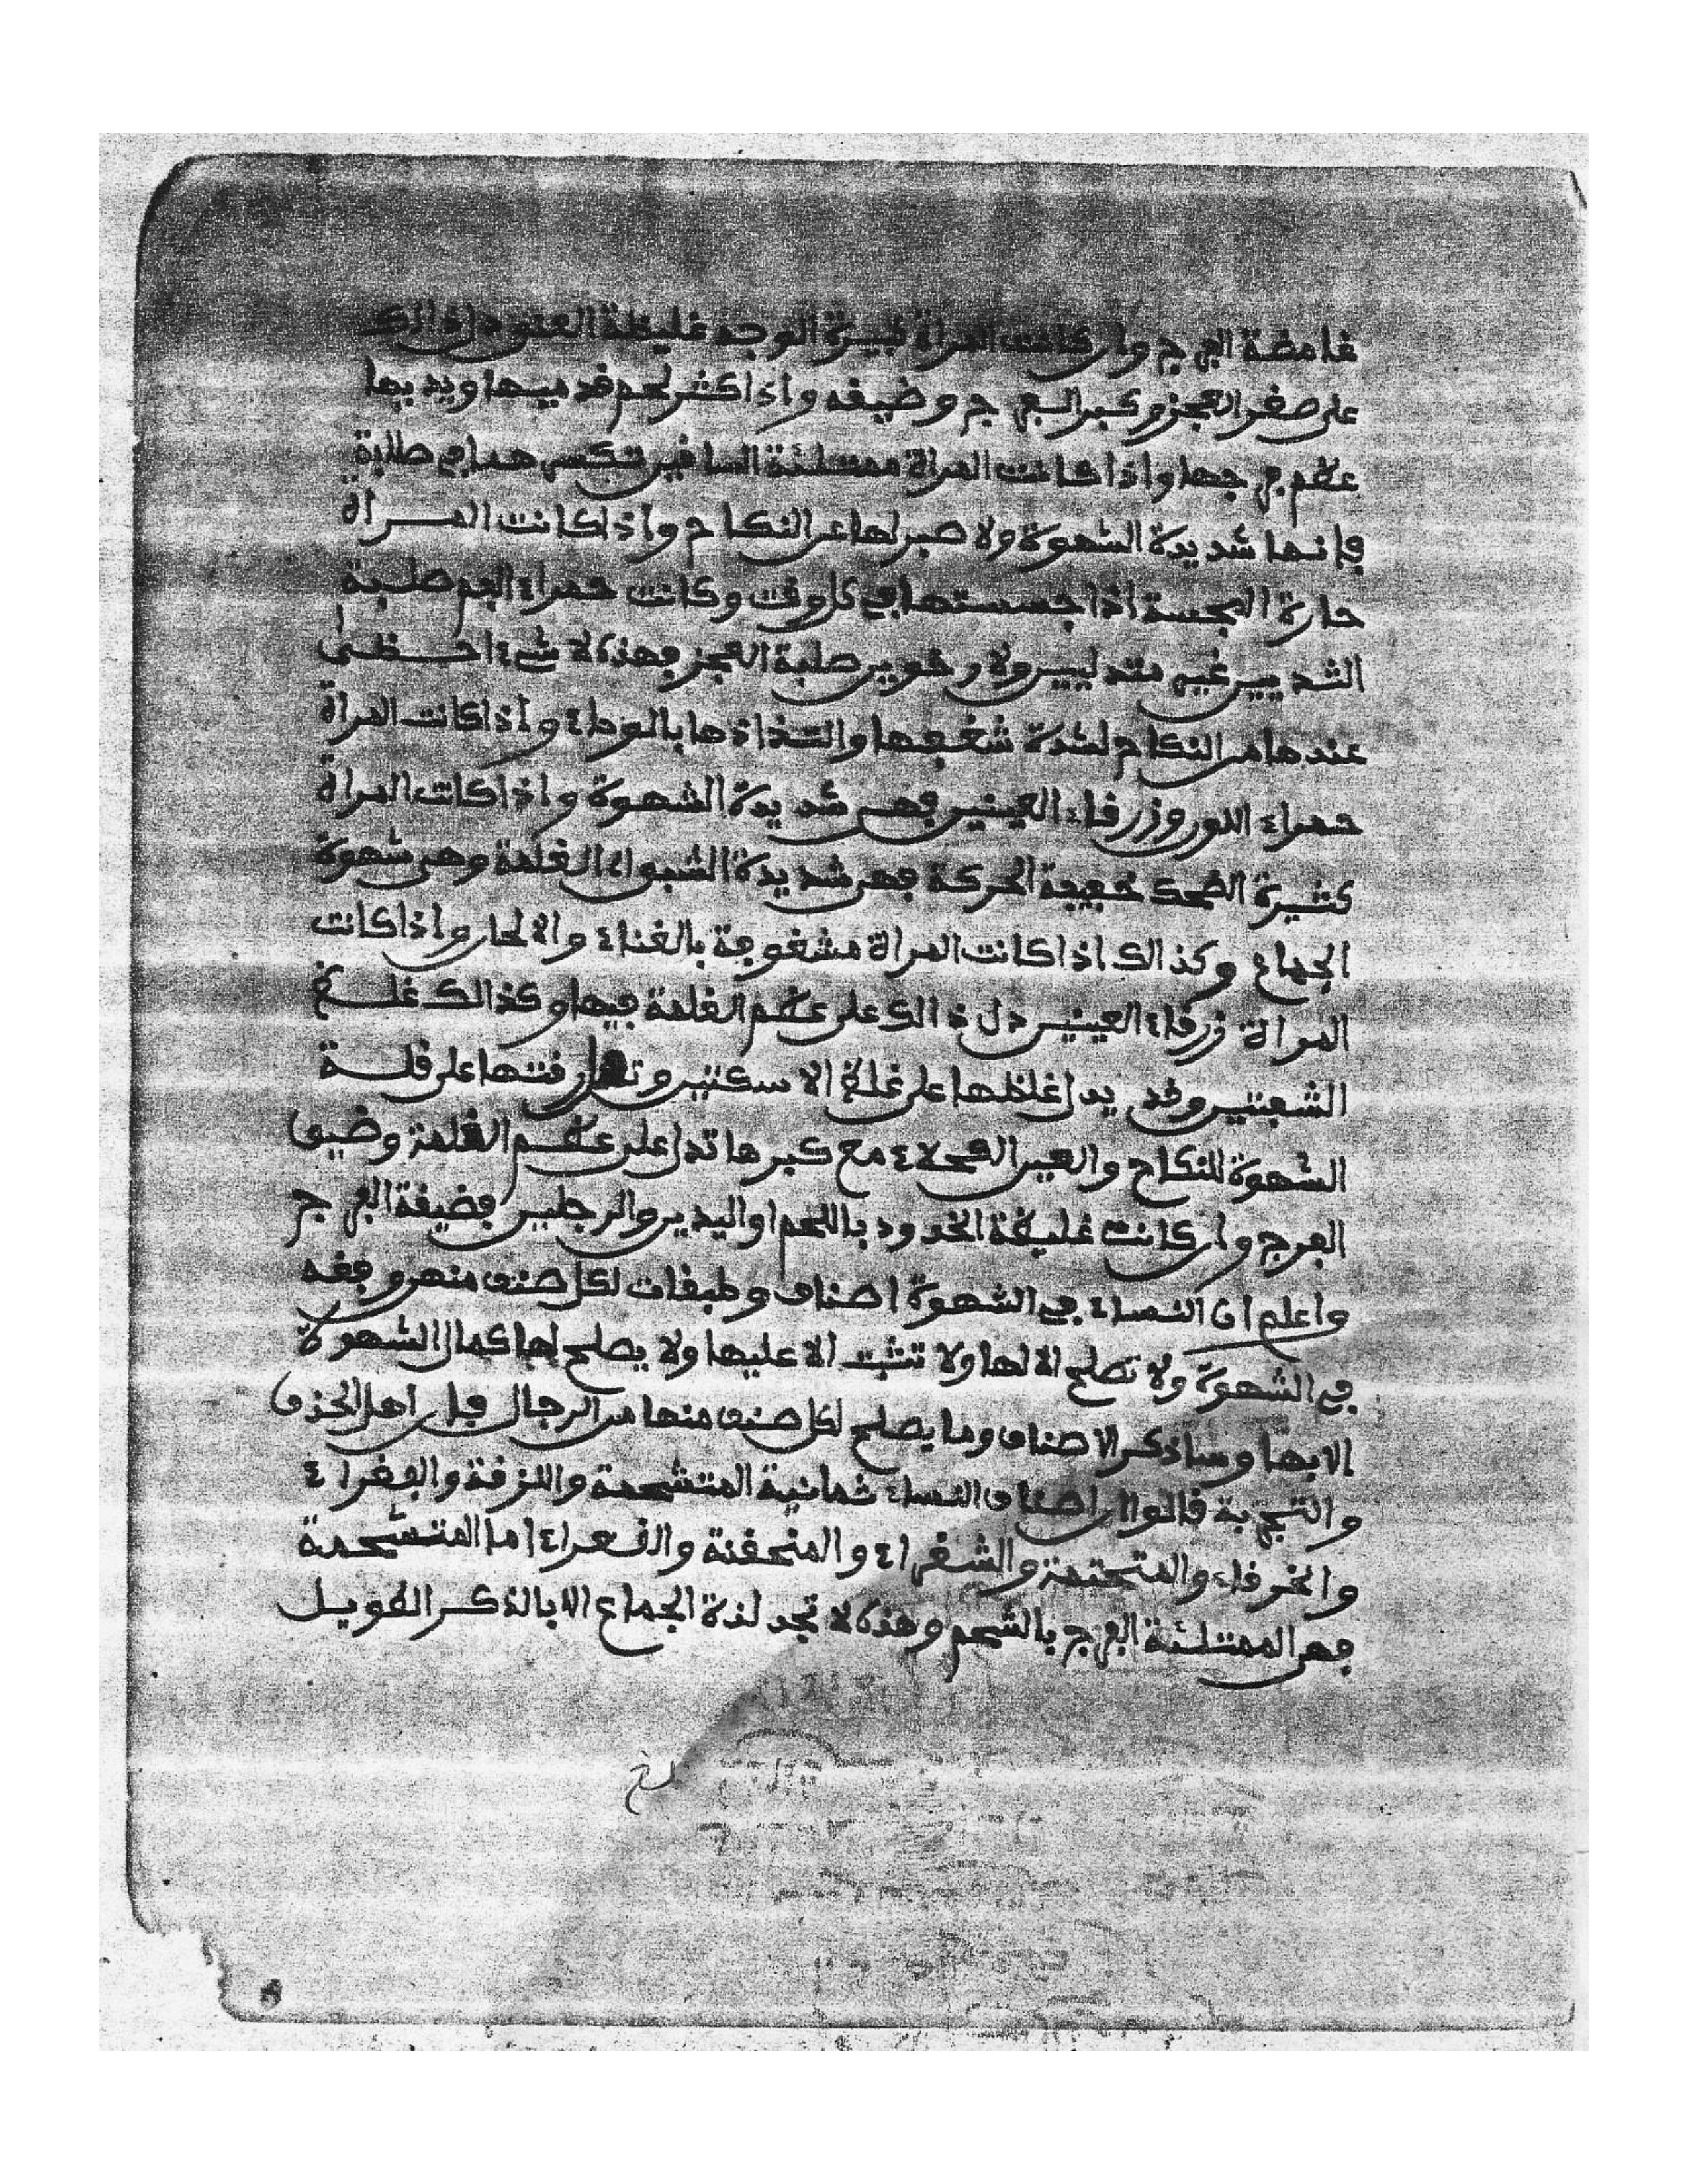 غامضة الفرج وان كانت المراة كبيرة الوجه غليظة العنق دل ذالك
على صغر العجز وكبر الفرج وضيقه واذا كثر لحم قدميها ويديها
عظم فرجها واذا كانت المراة ممتلئة الساقين صلبة
فانها شديدة الشهوة ولا صبر لها عن النكاح واذا كانت المراة
حارة المجسة اذا جسستها في كل وقت وكانت حمراء الفم صلبة
الثديين غير متدليين ولا رخوين صلبة العجز فهذه لا شيء احظى
عندها من النكاح لشدة شغفها والتذاذها بالوطء واذا كانت المراة
حمراء اللون وزرقاء العينين فهي شديدة الشهوة واذا كانت المراة
كثيرة الضحك خفيفة الحركة فهي شديدة الشبق اي الغلمة وهي شهوة
الجماع وكذالك اذا كانت المراة مشغوفة بالغناء والالحان واذا كانت
المراة زرقاء العينين دل ذالك على عظم الغلمة فيها وكذالك غلظ
الشفتين وقد يدل غلظها على غلظ الاسكتين رقتها على قلة
الشهوة للنكاح والعين الكحلاء مع كبرها تدل على عظم الغلمة وضيق
الفرج وان كانت غليظة الخدود باللحم او اليدين والرجلين فضيقة الفرج
واعلم ان النساء في الشهوة اصناف وطبقات لكل صنف منهن وقفه
في الشهوة ولا تصلح الا لها ولا تثبت الا عليها ولا يصلح لها كمال الشهوة
الا بها وساذكر الاصناف وما يصلح لكل صنف منها من الرجال قيل اهل الحذق
والتجربة قالوا ان اصناف النساء ثمانية المتشحمة واللزقة والفغراء
والخرقاء والمتحتمة والشفراء والمنحفنة والقعراء اما المتشحمة
فهي الممتلئة الفرج بالشحم وهذه لا تجد لذة الجماع الا بالذكر الطويل